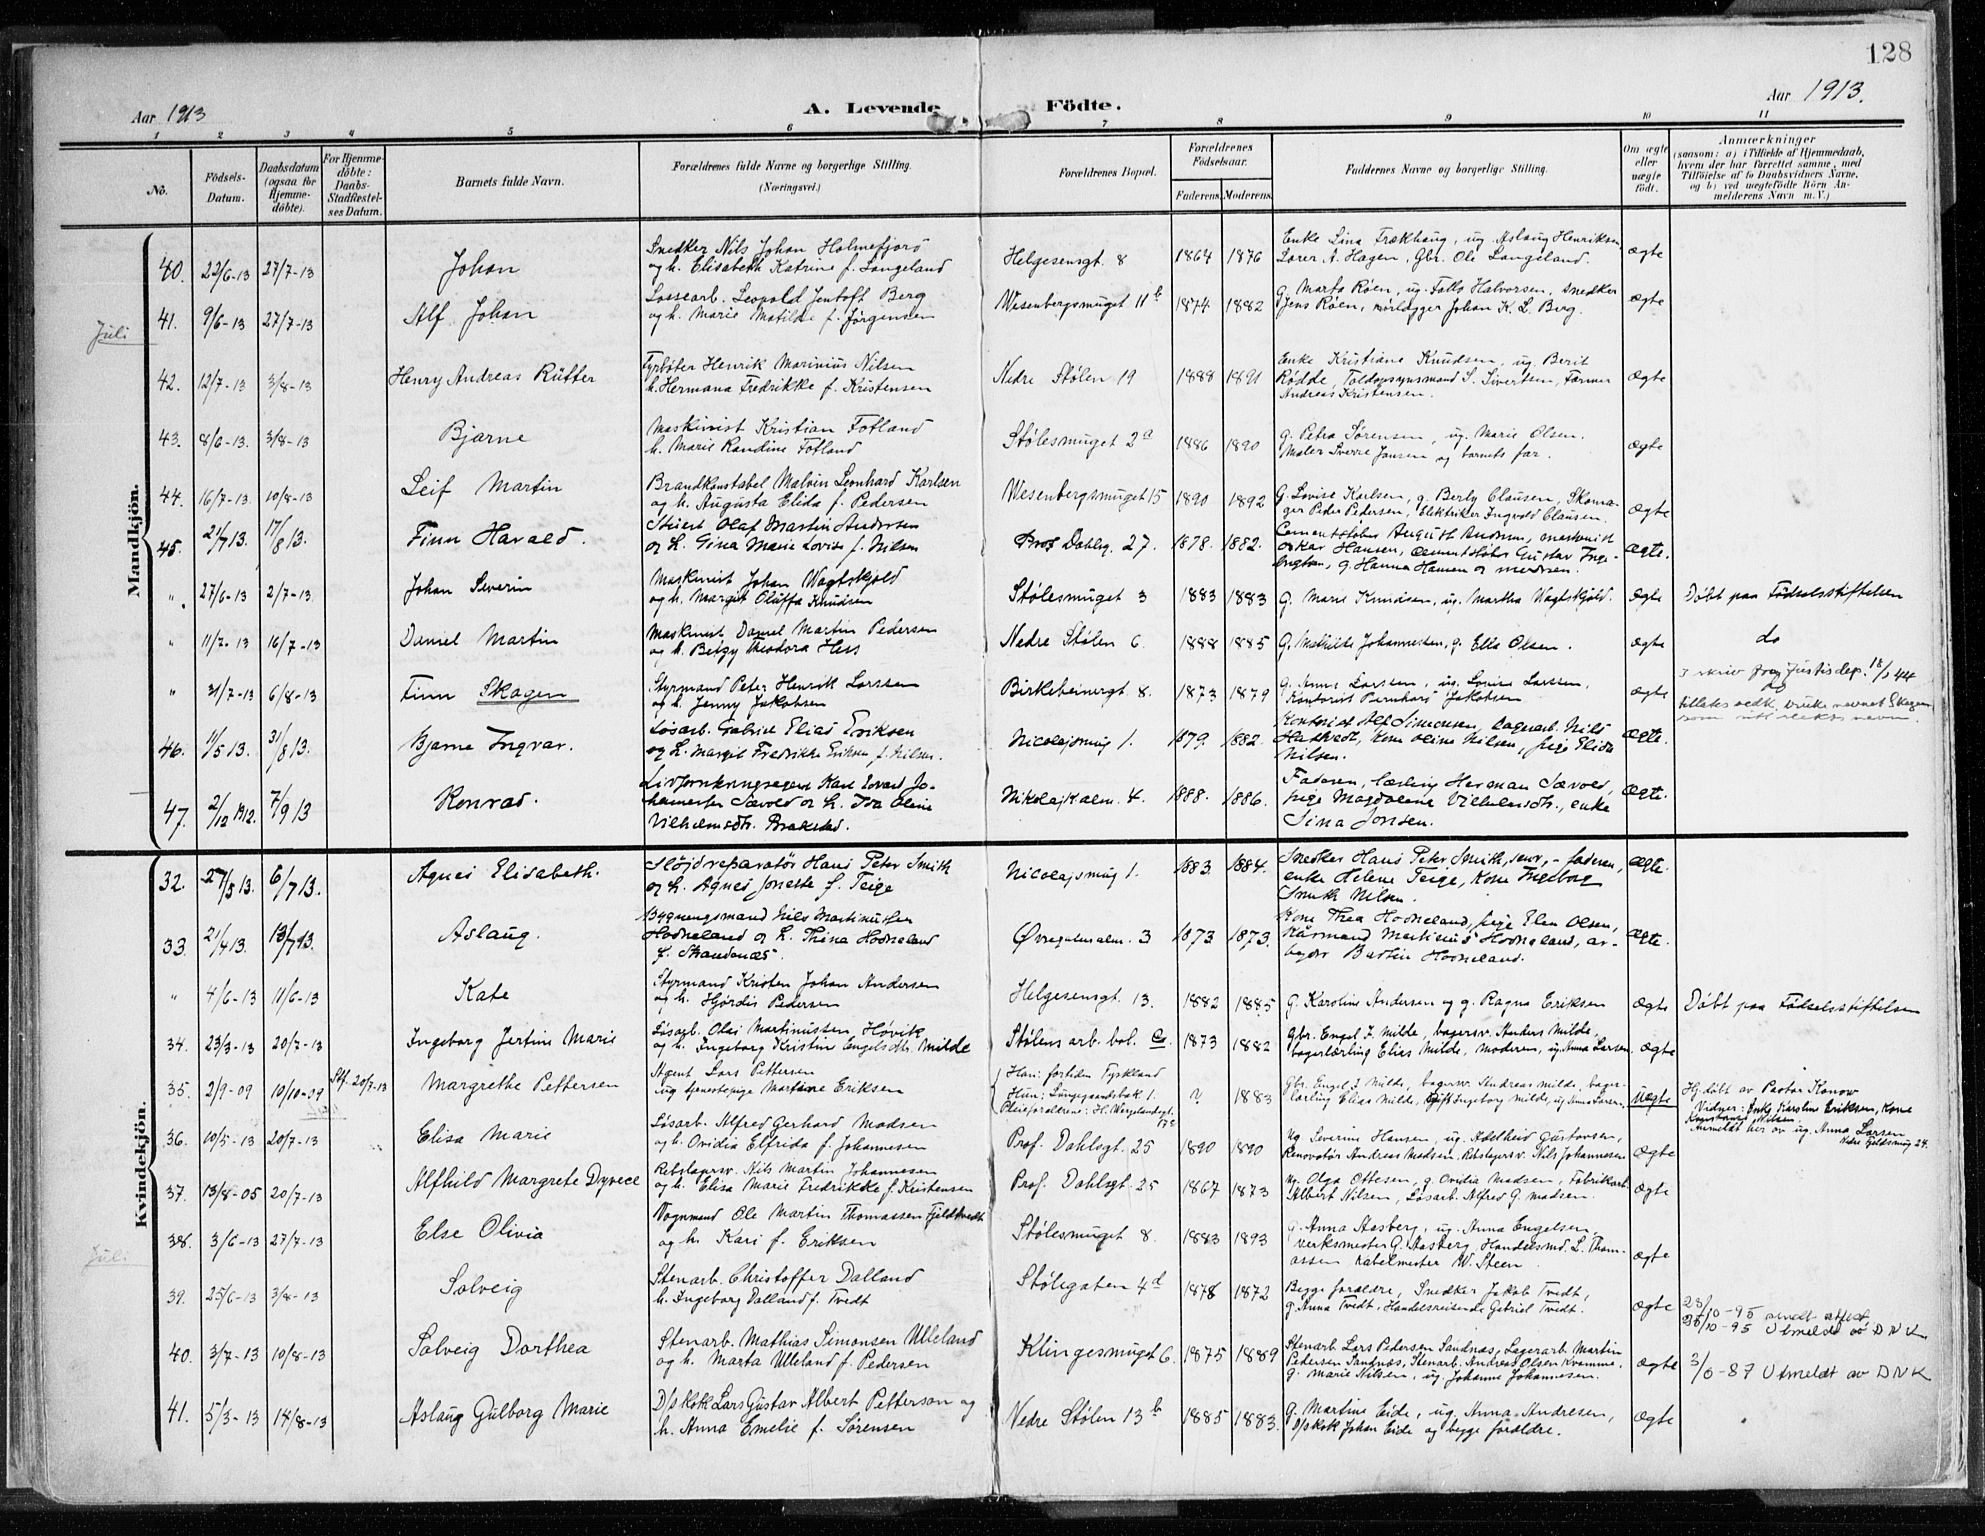 128
Aar 1913
A. Levende Födte.
Aar 1913.
1 2 3 4 5 6 7 8 9 10 11
No.
Födsels-Datum.
Daabsdatum (ogsaa for Hjemme-döbte).
For Hjemme-döbte: Daabs-Stadfæstel-ses Datum.
Barnets fulde Navn.
Forældrenes fulde Navne og borgerlige Stilling.
(Næringsvei.)
Forældrenes Bopæl.
Forældrenes Födselsaar.
Faderens. Moderens.
Faddernes Navne og borgerlige Stilling.
Om ægte eller uægte födt.
Anmærkninger
(saasom: a) i Tilfælde af Hjemmedaab,
hvem der har forrettet samme, med
Tilföielse af to Daabsvidners Navne,
og b) ved uægtefödte Börn An-
melderens Navn m. V.)
Mandkjön.
Juli
40. 22/6-13 27/7-13 Johan
Snedker Nils Johan Holmefjord
og h. Elisabeth Katrine f. Langeland
Helgesensgt. 8 1864 1876
Enke Lina Trækhaug, ug. Aslaug Henriksen
Lærer A. Hagen, Gbr. Ole Langeland.
ægte
41. 9/6-13 27/7-13 Alf Johan
Lossearb. Leopold Jentoft Berg
og h. Marie Matilde f. Jørgensen
Wesenbergsmuget 11 b 1874 1882
g. Marta Røen, ug. Falla Halvorsen, Snedker
Jens Røen, Johan K. L. Berg.
ægte
42. 12/7-13 3/8-13 Henry Andreas Rütter
Fyrbøter Henrik Marinius Nilsen
h. Hermana Fredrikke f. Kristensen
Nedre Stølen 19 1888 1891
Enke Kristiane Knudsen, ug. Berit
Rødde, Toldopsynsmand S. Sivertsen, Farmer
Andreas Kristensen.
ægte
43. 8/6-13. 3/8-13 Bjarne
Maskinist Kristian Fotland
h. Marie Randine Fotland
Stølesmuget 2 a 1886 1890
g. Petra Sørensen, ug. Marie Olsen.
Maler Sverre Jansen og barnets far.
ægte
44. 16/7-13. 10/8-13 Leif Martin
Brandkonstabel Malvin Leonhard Karlsen
og h. Augusta Elida f. Pedersen
Wesenbergsmuget 15 1890 1892
G. Lovise Karlsen, g. Berly Clausen, Skoma-
ger Peder Pedersen, Elektriker Ingvald Clausen.
ægte
45. 21/7 13. 17/8 13. Finn Harald.
Stuert Olaf Martin Andersen
og h. Gina Marie Lovise f. Nilsen
Prof Dahlsg. 27. 1878. 1882.
Cementstøber August Andersen, maskinist
Oskar Hansen, cementstøber Gustav Inge-
brigtsen, g. Hanna Hansen og moderen.
ægte.
" 27/6-13 2/7-13. Johan Severin
Maskinist Johan Vagtskjold
og h. Margit Oluffa Knudsen
Stølesmuget 3 1883 1883
G. Marie Knudsen, ug. Martha Vagtskjold.
ægte
Døbt paa Fødselsstiftelsen
" 11/7-13 16/7-13 Daniel Martin
Maskinist Daniel Martin Pedersen
og h. Betzy Theodora Hess
Nedre Stølen 6. 1888 1885
G. Mathilde Johannessen, g. Ella Olsen.
ægte
do
" 31/7-13 6/8-13 Finn Skagen
Styrmand Peter Henrik Larssen
og h. Jenny Jakobsen
Birkebeinergt 8. 1873 1879
g. Anna Larssen, ug. Louise Larssen,
Kontorist Jakobsen
ægte
I skriv fra Justisdep. 18/1 44
tillates vedk. bruke navnet Skagen
som slektsnavn.
46. 11/5 13. 31/8 13. Bjarne Ingvar.
Løsarb. Gabriel Elias Eriksen
og h. Margit Fredrikke Eriksen, f. Nilsen.
Nicolajsmug 1. 1879. 1882.
Kontorist Alf Simensen, Lagerarb. Nils
Hatlevedt, Kone Oline Nilsen, pige Elida
Nilsen.
ægte.
47. 2/12 1912. 7/9 13 Konrad.
Livforsikringsagent Karl Edvard Jo-
hannessen Sævold og h. Ida Oline
Vilhelmsdtr. Brakstad.
Nikolajkalm. 4. 1888. 1886.
Faderen, lærling Herman Sævold,
pige Magdalene Vilhelmsdtr., enke
Sina Jonsen.
ægte.
Kvindekjön.
32. 27/5 13. 6/7 13. Agnes Elisabeth.
Sløjdreparatør Hans Peter Smith
og h. Agnes Jonette f. Teige
Nicolajsmug 1. 1883 1884.
Snedker Hans Peter Smith, senr, - faderen,
enke Helene Teige, Kone Ingeborg
Smith Nilsen.
ægte.
33. 21/4 13. 13/7 13. Aslaug.
Bygningsmand Nils Martinussen
Hodneland og h. Thina Hodneland
f. Strandenæs.
Øvregatealm. 3 1873 1873.
Kone Thea Hodneland, pige Elen Olsen,
Kårmand Martinus Hodneland, ar-
bejder Bertin Hodneland.
ægte.
" 4/6-13 11/6-13 Kate
Styrmand Kristen Johan Andersen
og h. Hjørdis Pedersen
Helgesensgt. 13. 1882 1885
G. Karoline Andersen og g. Ragna Eriksen
ægte
Døbt paa Fødselsstiftelsen
34. 23/3-13 20/7-13 Ingeborg Jertine Marie
Løsarb. Olai Martinussen Høvik
og h. Ingeborg Kristin Engelsdtr. Milde
Stølens arb. bol. C. 1873 1882
Gbr. Engel J. Milde, bagersv. Anders Milde,
bagerlærling Elias Milde, moderen, ug. Anna Larsen.
ægte
35. 2/9-09 10/10-09 Stf. 20/7-13 Margrethe Pettersen
Agent Lars Pettersen
ug tjenestepige Martine Eriksen
Han: fortiden Tyskland
Hun: Lungegaardsbak 1.
Pleieforældrene: H. Wergelandsgt. 17 c
? 1883
Gbr. Engel J. Milde, bagersv. Andreas Milde, bager-
lærling Elias Milde, gift Ingeborg Milde, ug Anna Larsen.
uægte
Hj. døbt av Pastor Konow
Vidner: Enke Karoline Eriksen, Kone
Nilsen
Anmeldt her av ug. Anna Larsen
Nedre Fjeldsmug 24.
36. 10/5-13 20/7-13 Elisa Marie
Løsarb. Alfred Gerhard Madsen
og h. Ovidia Elfrida f. Johannesen
Prof. Dahlsgt. 25 1890 1890
ug. Severine Hansen, ug. Adelheid Gustavsen,
Renovatør Andreas Madsen, Rebslagersv. Nils Johannesen
ægte
37. 13/8-05 20/7-13 Alfhild Margrete Dyvece
Rebslagersv. Nils Martin Johannesen
og h. Elisa Marie Fredrikke f. Kristensen
Prof. Dahlsgt. 25 1867 1873
ug. Olga Ottesen, g. Ovidia Madsen, Fabrikarb.
Albert Nilsen, Løsarb. Alfred G. Madsen.
ægte
Juli
38. 3/6-13 27/7-13 Else Olivia
Vognmand Ole Martin Thomassen Fjeldtvedt
og h. Kari f. Eriksen
Stølesmuget 8. 1883 1893
g. Anna Aasberg, ug. Anna Engelsen,
verksmester G. Aasberg, Handelsmd. L. Thom-
assen Kabelmester W. Steen
ægte
39. 25/6-13 3/8-13 Solveig
Stenarb. Christoffer Dalland
h. Ingeborg Dalland f. Tvedt
Stølegaten 4 d 1878 1872
Begge forældre, Snedker Jakob Tvedt,
g. Anna Tvedt, Handelsreisende Gabriel Tvedt.
ægte
23/10-95
25/10-95 Utmeldt av DNK
40. 3/7-13 10/8-13 Solveig Dorthea
Stenarb. Mathias Simonsen Ulleland
og h. Marta Ulleland f. Pedersen
Klingesmuget 6. 1875 1889
Stenarb. Lars Pedersen Sandnæs, Lagerarb. Martin
Pedersen Sandnæs, Stenarb. Andreas Olsen Kvamme,
g. Marie Nilsen, ug. Johanne Johannesen.
ægte
Utmeldt av DNK
41. 5/3-13 14/8-13 Aslaug Gulborg Marie
D/s kok Lars Gustav Albert Petterson og
h. Anna Emelie f. Sørensen
Nedre Stølen 13 b 1885 1883.
g. Martine Eide, ug. Anna Andresen,
D/s kok Johan Eide og begge forældre.
ægte